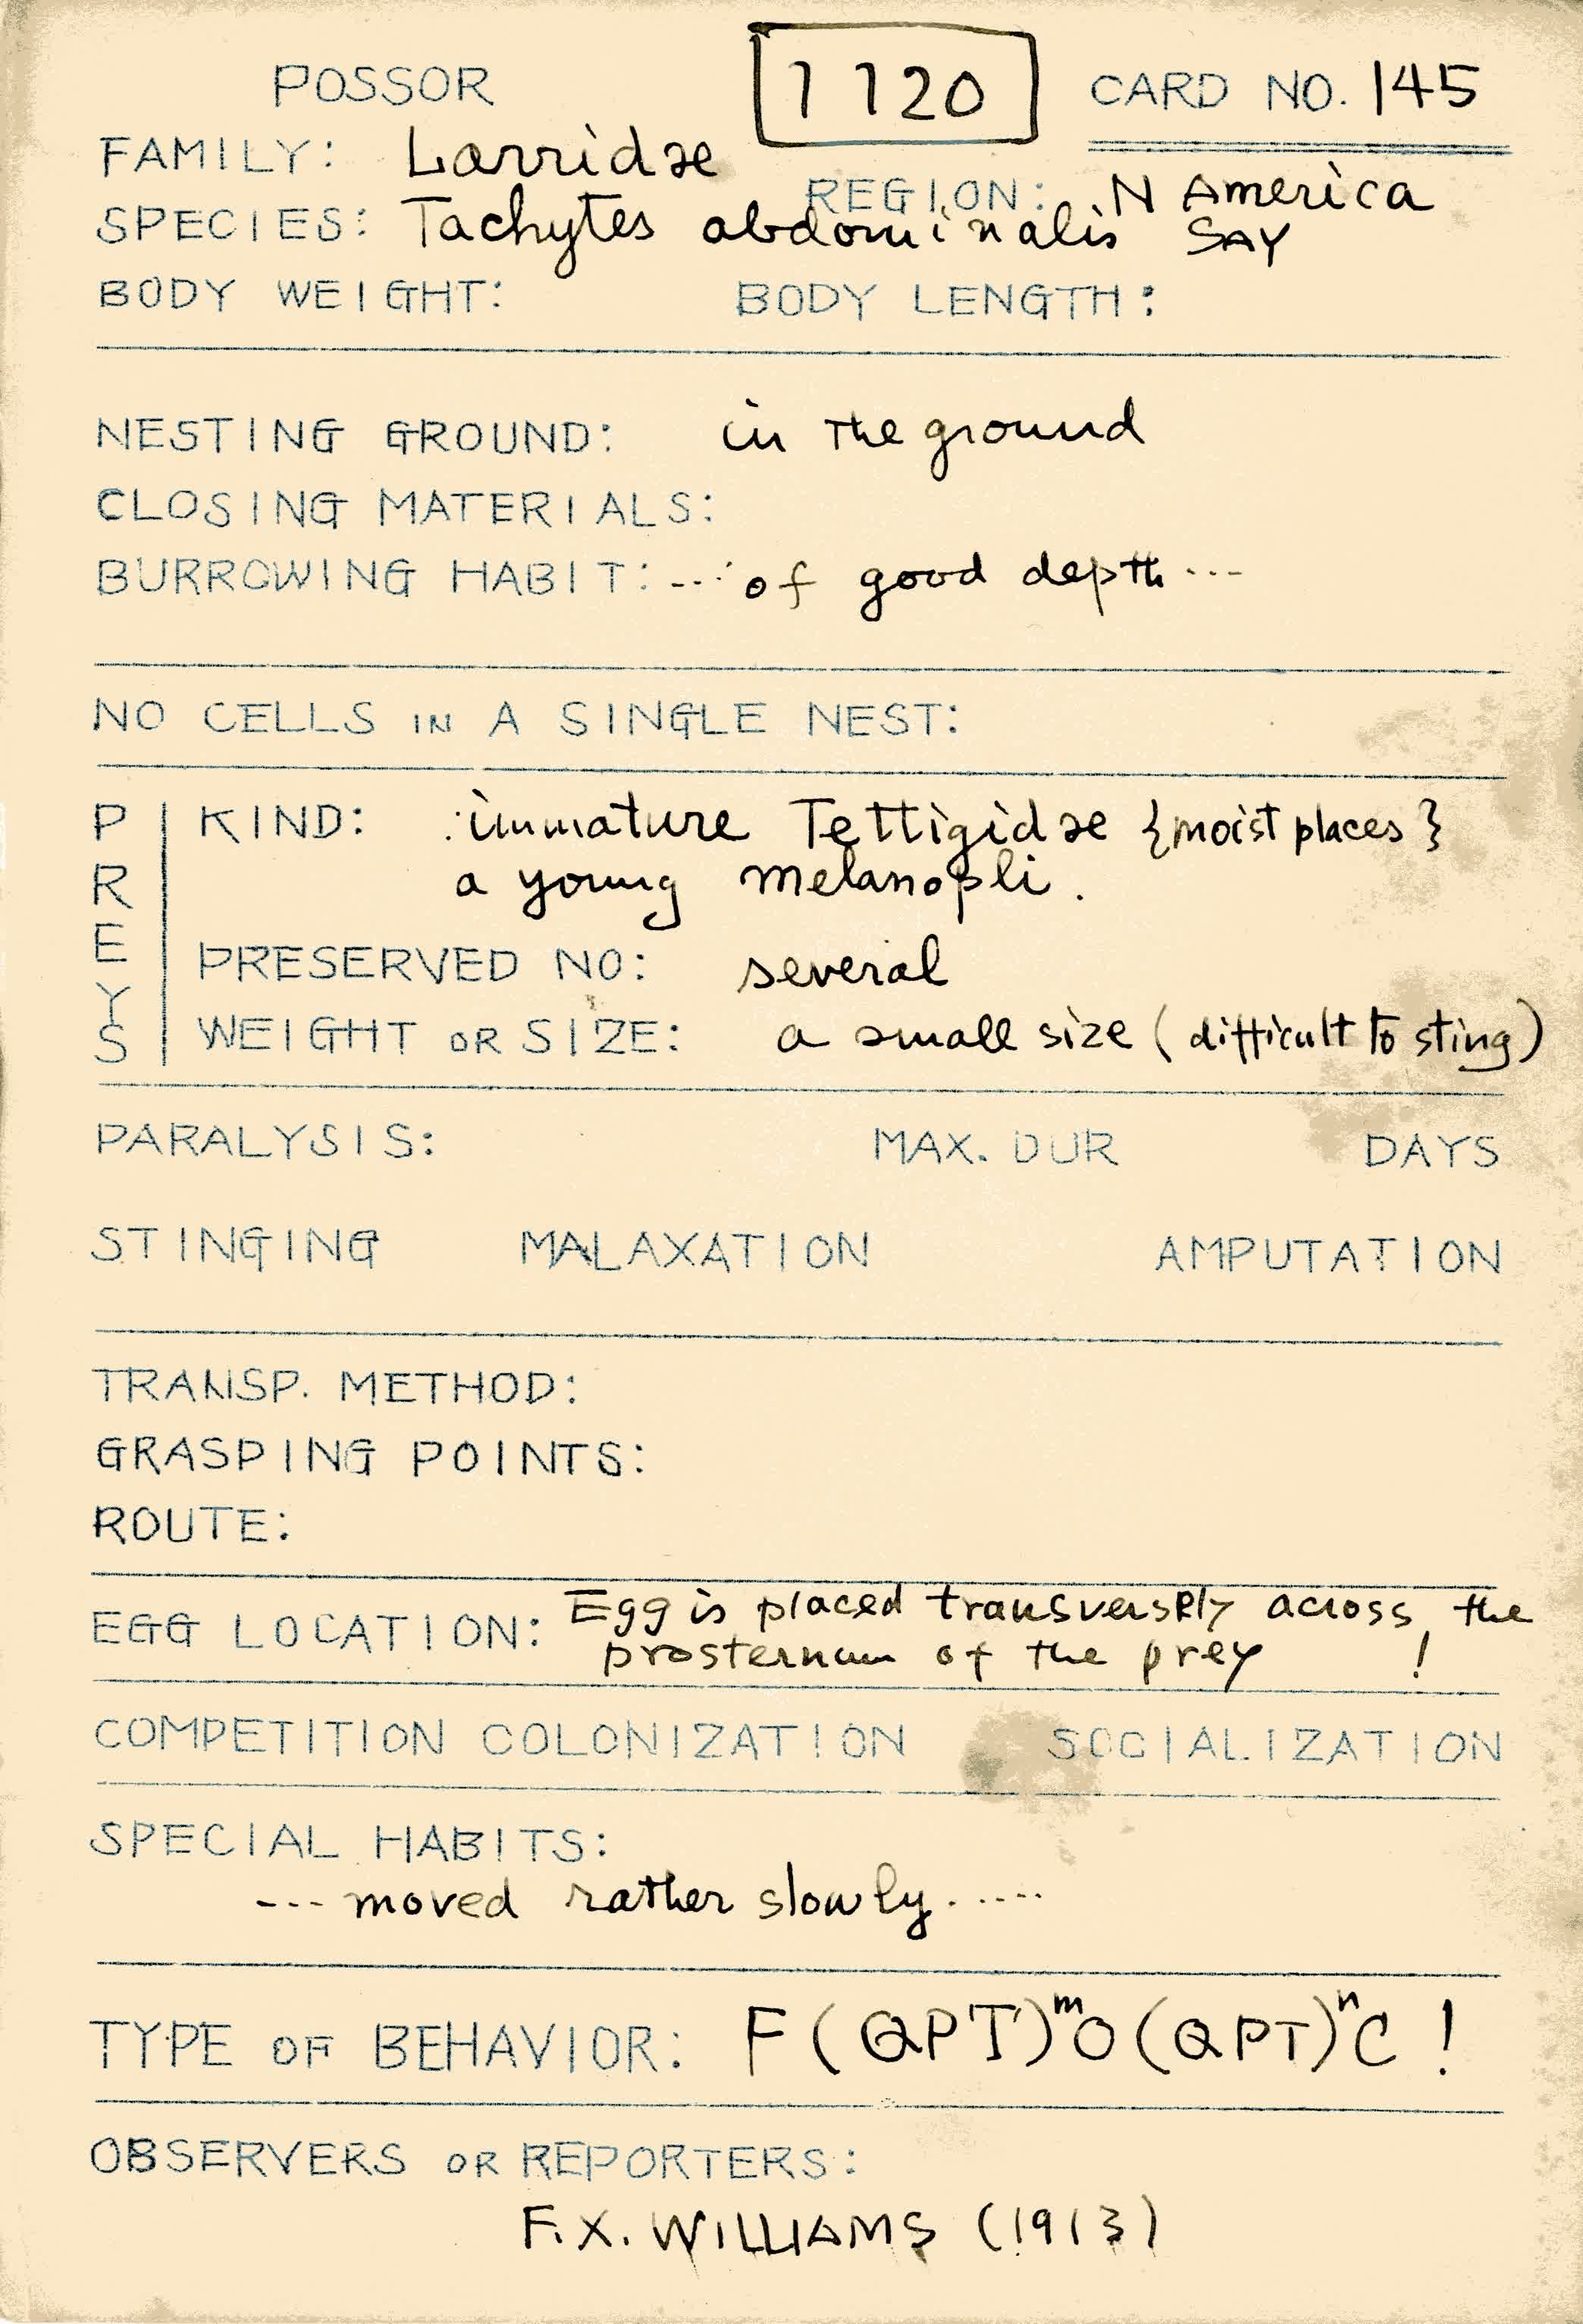 POSSOR 1120 CARD NO. 145
FAMILY: Larridae
REGION: N America
SPECIES: Tachytes abdominalis SAY
BODY WEIGHT: BODY LENGTH:
NESTING GROUND: in the ground
CLOSING MATERIALS:
BURROWING HABIT: --- of good depth ---
NO CELLS IN A SINGLE NEST:
PREYS
KIND: immature Tettigidae {moist places}
a young melanopli.
PRESERVED NO: several
WEIGHT OR SIZE: a small size (difficult to sting)
PARALYSIS: MAX. DUR DAYS
STINGING MALAXATION AMPUTATION
TRANSP. METHOD:
GRASPING POINTS:
ROUTE:
EGG LOCATION: Egg is placed transversely across the
prosternum of the prey !
COMPETITION COLONIZATION SOCIALIZATION
SPECIAL HABITS:
--- moved rather slowly.....
TYPE OF BEHAVIOR: F(QPT)ᵐO(QPT)ⁿC !
OBSERVERS OR REPORTERS:
F.X. WILLIAMS (1913)